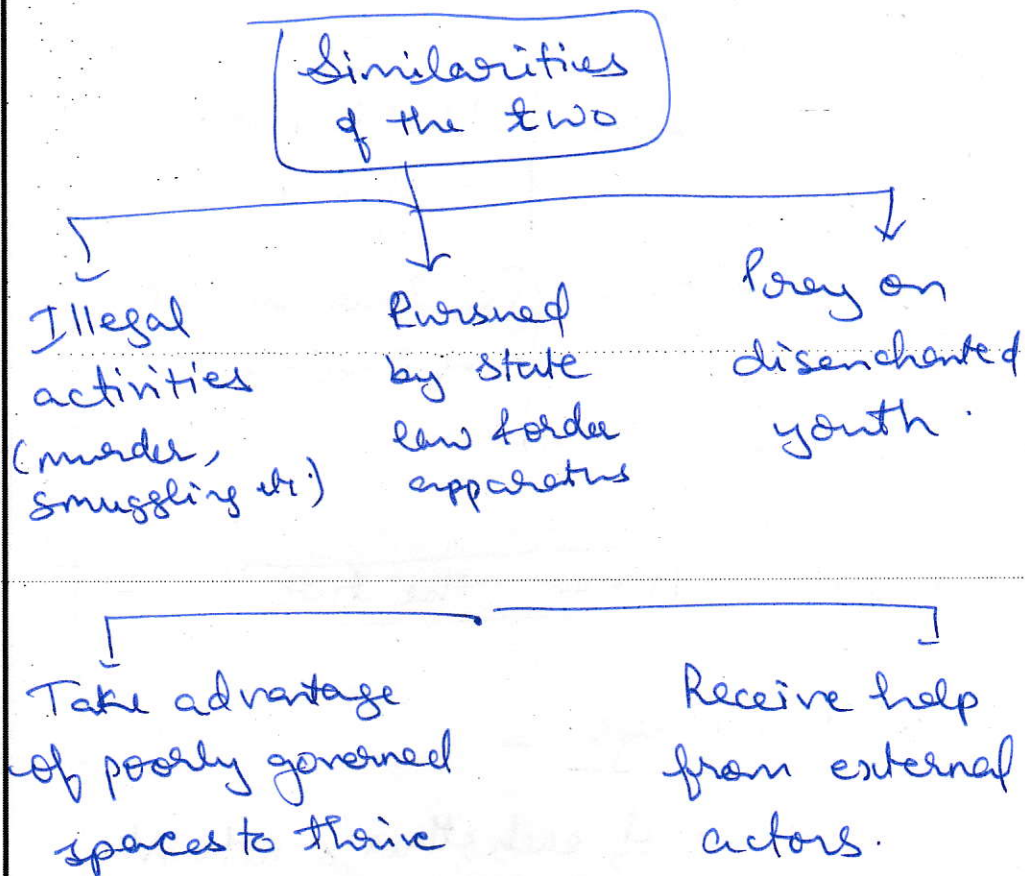 Similarities
of the two
Illegal
activities
(murder,
smuggling etc.)
Pursued
by state
law & order
apparatus
Prey on
disenchanted
youth.
Take advantage
of poorly governed
spaces to thrive
Receive help
from external
actors.